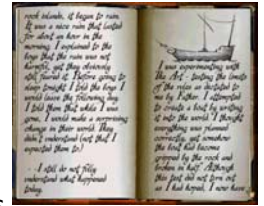 rock islands, it began to rain.
It was a nice rain that lasted
for about an hour in the
morning. I explained to the
boys that the rain was not
harmful, yet they obviously
still feared it. Before going to
sleep tonight I told the boys I
would leave the following day.
I told them that while I was
gone, I would make a surprising
change in their world. They
didn't understand (not that I
expected them to.)
- I still do not fully
understand what happened
today.
I was experimenting with
The Art - testing the limits
of the rules as dictated to
me by Father. I attempted
to create a boat by writing
it into the world. I thought
everything was planned
correctly, yet somehow
the boat had become
gripped by the rock and
broken in half. Although
this test did not turn out
as I had hoped, I now have